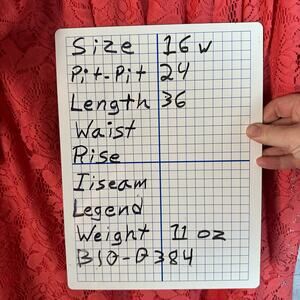 Size 16 w
Pit-Pit 24
Length 36
Waist
Rise
Iiseam
Legend
Weight 11 oz
B10-Q384